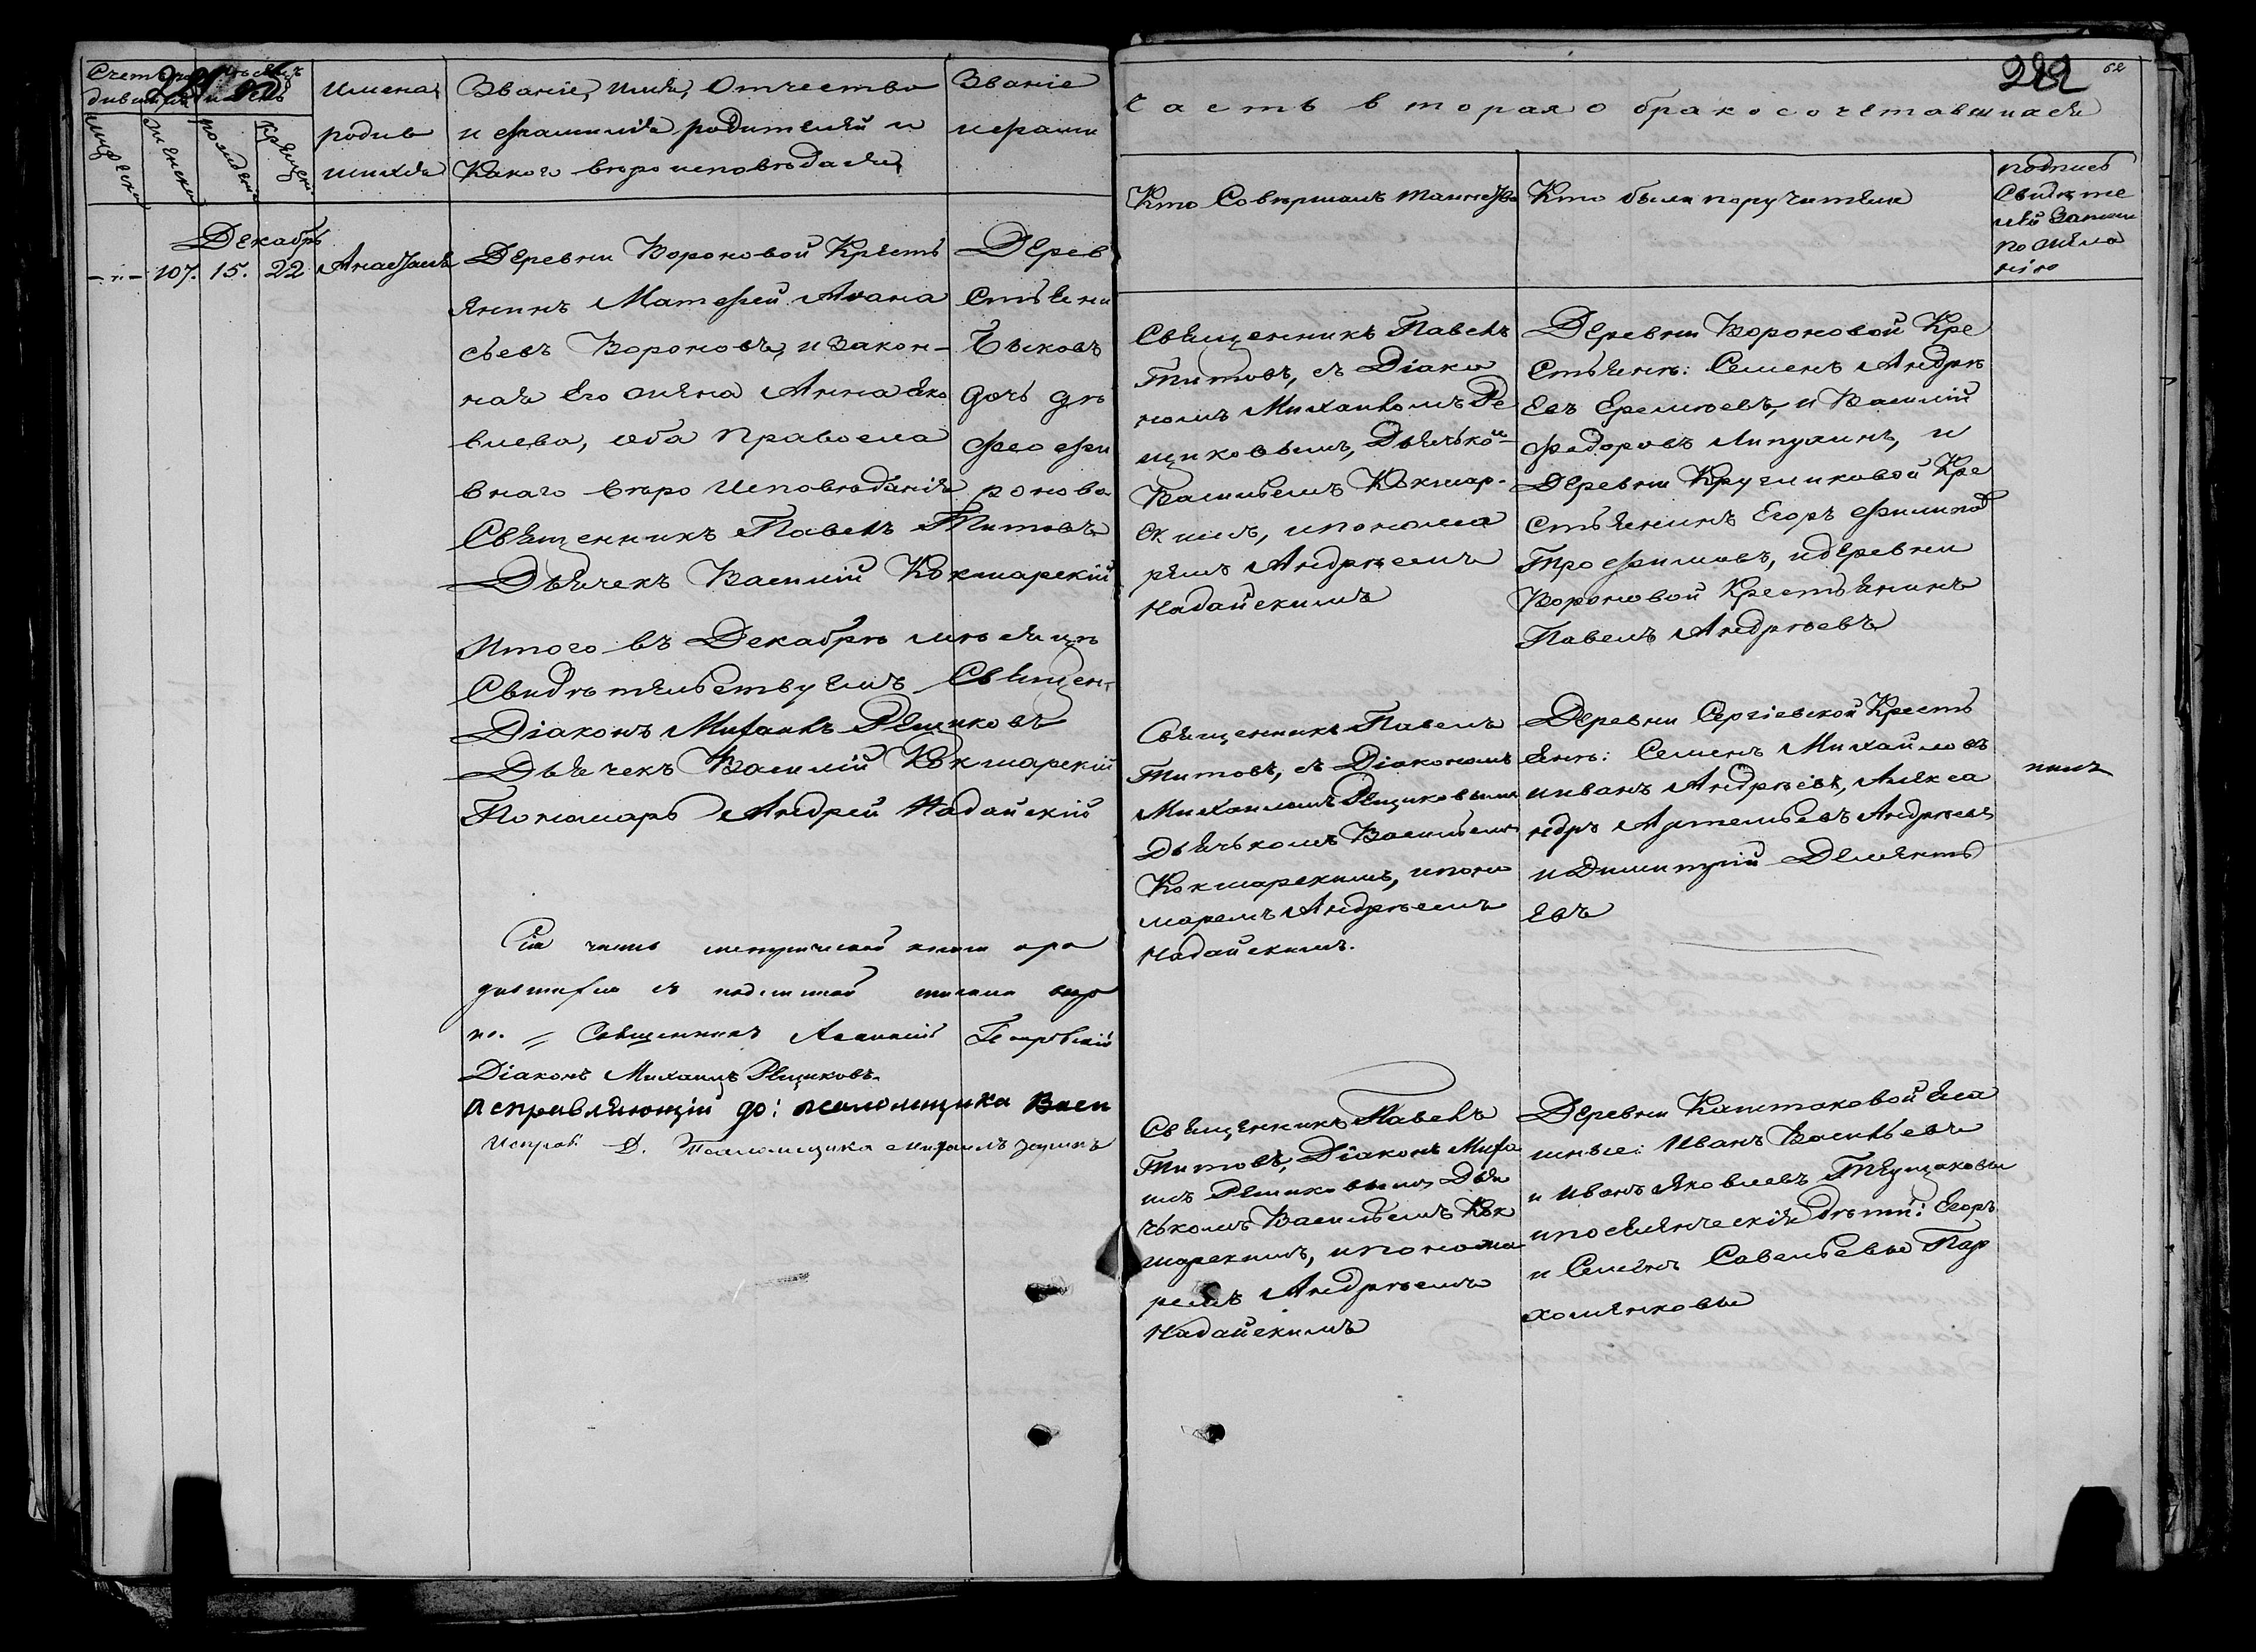 Счетъ ро мѣсяцъ
дившихся и день
Имена
родив
шихся
Званіе, имя, Отчество
и фамилія родителей и
Какого вѣроисповѣданія
Званіе
и фами
мужеска
женска
рожденія
крещенія
Декабрь
-"- 107. 15. 22 Анастасія
Деревни Вороновой Кресть
янинъ Матфей Аѳана
сьевъ Вороновъ, и закон-
ная Его жена Анна Яко
влева, оба Правосла
внаго вѣроисповѣданія
Дерев
Стьяни
Быковъ
дочь дѣ
Феофи
ронова
Священникъ Павелъ Титовъ
Дьячекъ Василій Кокшарскій
Итого въ Декабрѣ мѣсяцѣ
Свидѣтельствуемъ Священ.
Діаконъ Михаилъ Рещиковъ
Дьячекъ Василій Кокшарскій
Пономарь Андрей Надайскій
Сія часть метрической книги
съ подлинной
Священникъ Петровскій
Діаконъ Михаилъ Рещиковъ
Исправляющій до: псаломщика Васи
Исправ. Д. Псаломщика Михаилъ
222 62
Часть вторая о бракосочетавшихся
Кто Совершалъ таинство
Кто были поручители
подпись
Свидѣте
лей Запи
по жела
нію
Священникъ Павелъ
Титовъ, съ Діако
номъ Михаиломъ Ре
щиковымъ, Дьячком
Василіемъ Кокшар-
скимъ, и понома
ремъ Андреемъ
Надайскимъ
Деревни Вороновой Кре
стьяне: Семенъ Андрѣ
евъ Еремѣевъ, и Василій
Федоровъ Липухинъ, и
Деревни Кругликовой Кре
стьянинъ Егоръ Филипов
Трофимовъ, и деревни
Вороновой Крестьянинъ
Павелъ Андрѣевъ
Священникъ Павелъ
Титовъ, съ Діакономъ
Михаиломъ Рещиковымъ
Дьячькомъ Василіемъ
Кокшарскимъ, и поно
маремъ Андрѣемъ
Надайскимъ.
Деревни Сергіевской Кресть
яне: Семенъ Михайловъ
Иванъ Андрѣевъ, Алекса
ндръ Артемьевъ Андрѣевъ
и Димитрій Дементь
евъ
Священникъ Павелъ
Титовъ, Діаконъ Миха
илъ Рещиковымъ Дья
чькомъ Василіемъ Кок
шарскимъ, и понома
ремъ Андрѣемъ
Надайскимъ
Деревни Каштаковой Яса
шные: Иванъ Васильевъ
и Иванъ Яковлевъ Тецуцаковы
и поселянческія дѣти: Егоръ
и Семенъ Савельевы Пар
хоменковы